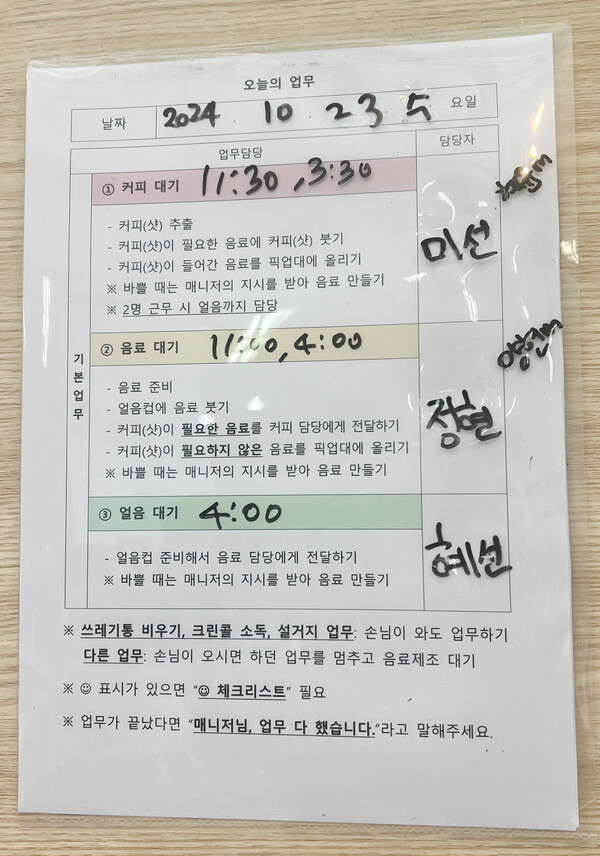 오늘의 업무
날짜 2024 . 10 . 23. 수 요일
업무담당 담당자
① 커피 대기 11:30 , 3:30
- 커피(샷) 추출
- 커피(샷)이 필요한 음료에 커피(샷) 붓기
- 커피(샷)이 들어간 음료를 픽업대에 올리기
※ 바쁠 때는 매니저의 지시를 받아 음료 만들기
※ 2명 근무 시 얼음까지 담당
미선
기본업무
② 음료 대기 11:00, 4:00
- 음료 준비
- 얼음컵에 음료 붓기
- 커피(샷)이 필요한 음료를 커피 담당에게 전달하기
- 커피(샷)이 필요하지 않은 음료를 픽업대에 올리기
※ 바쁠 때는 매니저의 지시를 받아 음료 만들기
정현
③ 얼음 대기 4:00
- 얼음컵 준비해서 음료 담당에게 전달하기
※ 바쁠 때는 매니저의 지시를 받아 음료 만들기
혜선
※ 쓰레기통 비우기, 크린콜 소독, 설거지 업무: 손님이 와도 업무하기
다른 업무: 손님이 오시면 하던 업무를 멈추고 음료제조 대기
※ ☺ 표시가 있으면 “☺ 체크리스트” 필요
※ 업무가 끝났다면 “매니저님, 업무 다 했습니다.”라고 말해주세요.